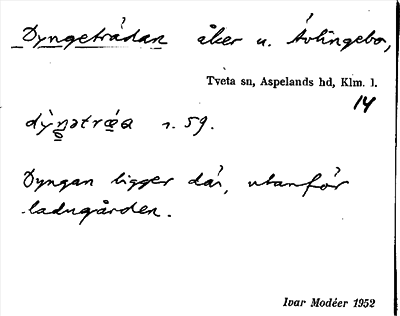 Dyngeträdan åker u. Åvlingebo,
Tveta sn, Aspelands hd, Klm. l.
14
s. 59.
Dyngan ligger där, utanför
ladugården.
Ivar Modéer 1952